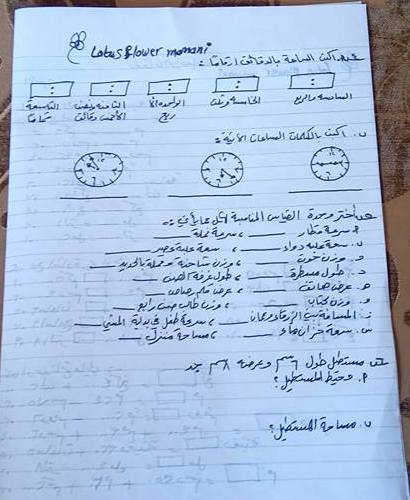 Lotus flower momani
اكتب الساعة بالدقائق ارقاما :
: : : : :
السادسة والربع الخامسة وثلث الواحدة إلا ربع الثامنة ونصف الأخمس دقائق التاسعة تماما
ب. اكتب بالكلمات الساعات الآتية :
اختر وحدة القياس المناسبة لكل مما يأتي :-
سرعة قطار ____ ، سرعة نملة ____
ب. سعة علبة دواء ____ ، سعة علبة عصير ____
وزن خروف ____ ، وزن شاحنة محملة بالحديد ____
د. طول مسطرة ____ ، طول غرفة الصف ____
هـ. عرض هاتف ____ ، عرض قلم رصاص ____
و. وزن كتاب ____ ، وزن طالب صف رابع ____
ز. المسافة بين الزرقاء وعمان ____ ، سرعة طفل في بداية المشي ____
سعة خزان ماء ____ ، مساحة منزل ____
مستطيل طول ٦ سم وعرضه ٨ سم جد
٩. محيط المستطيل ؟
ب. مساحة المستطيل ؟